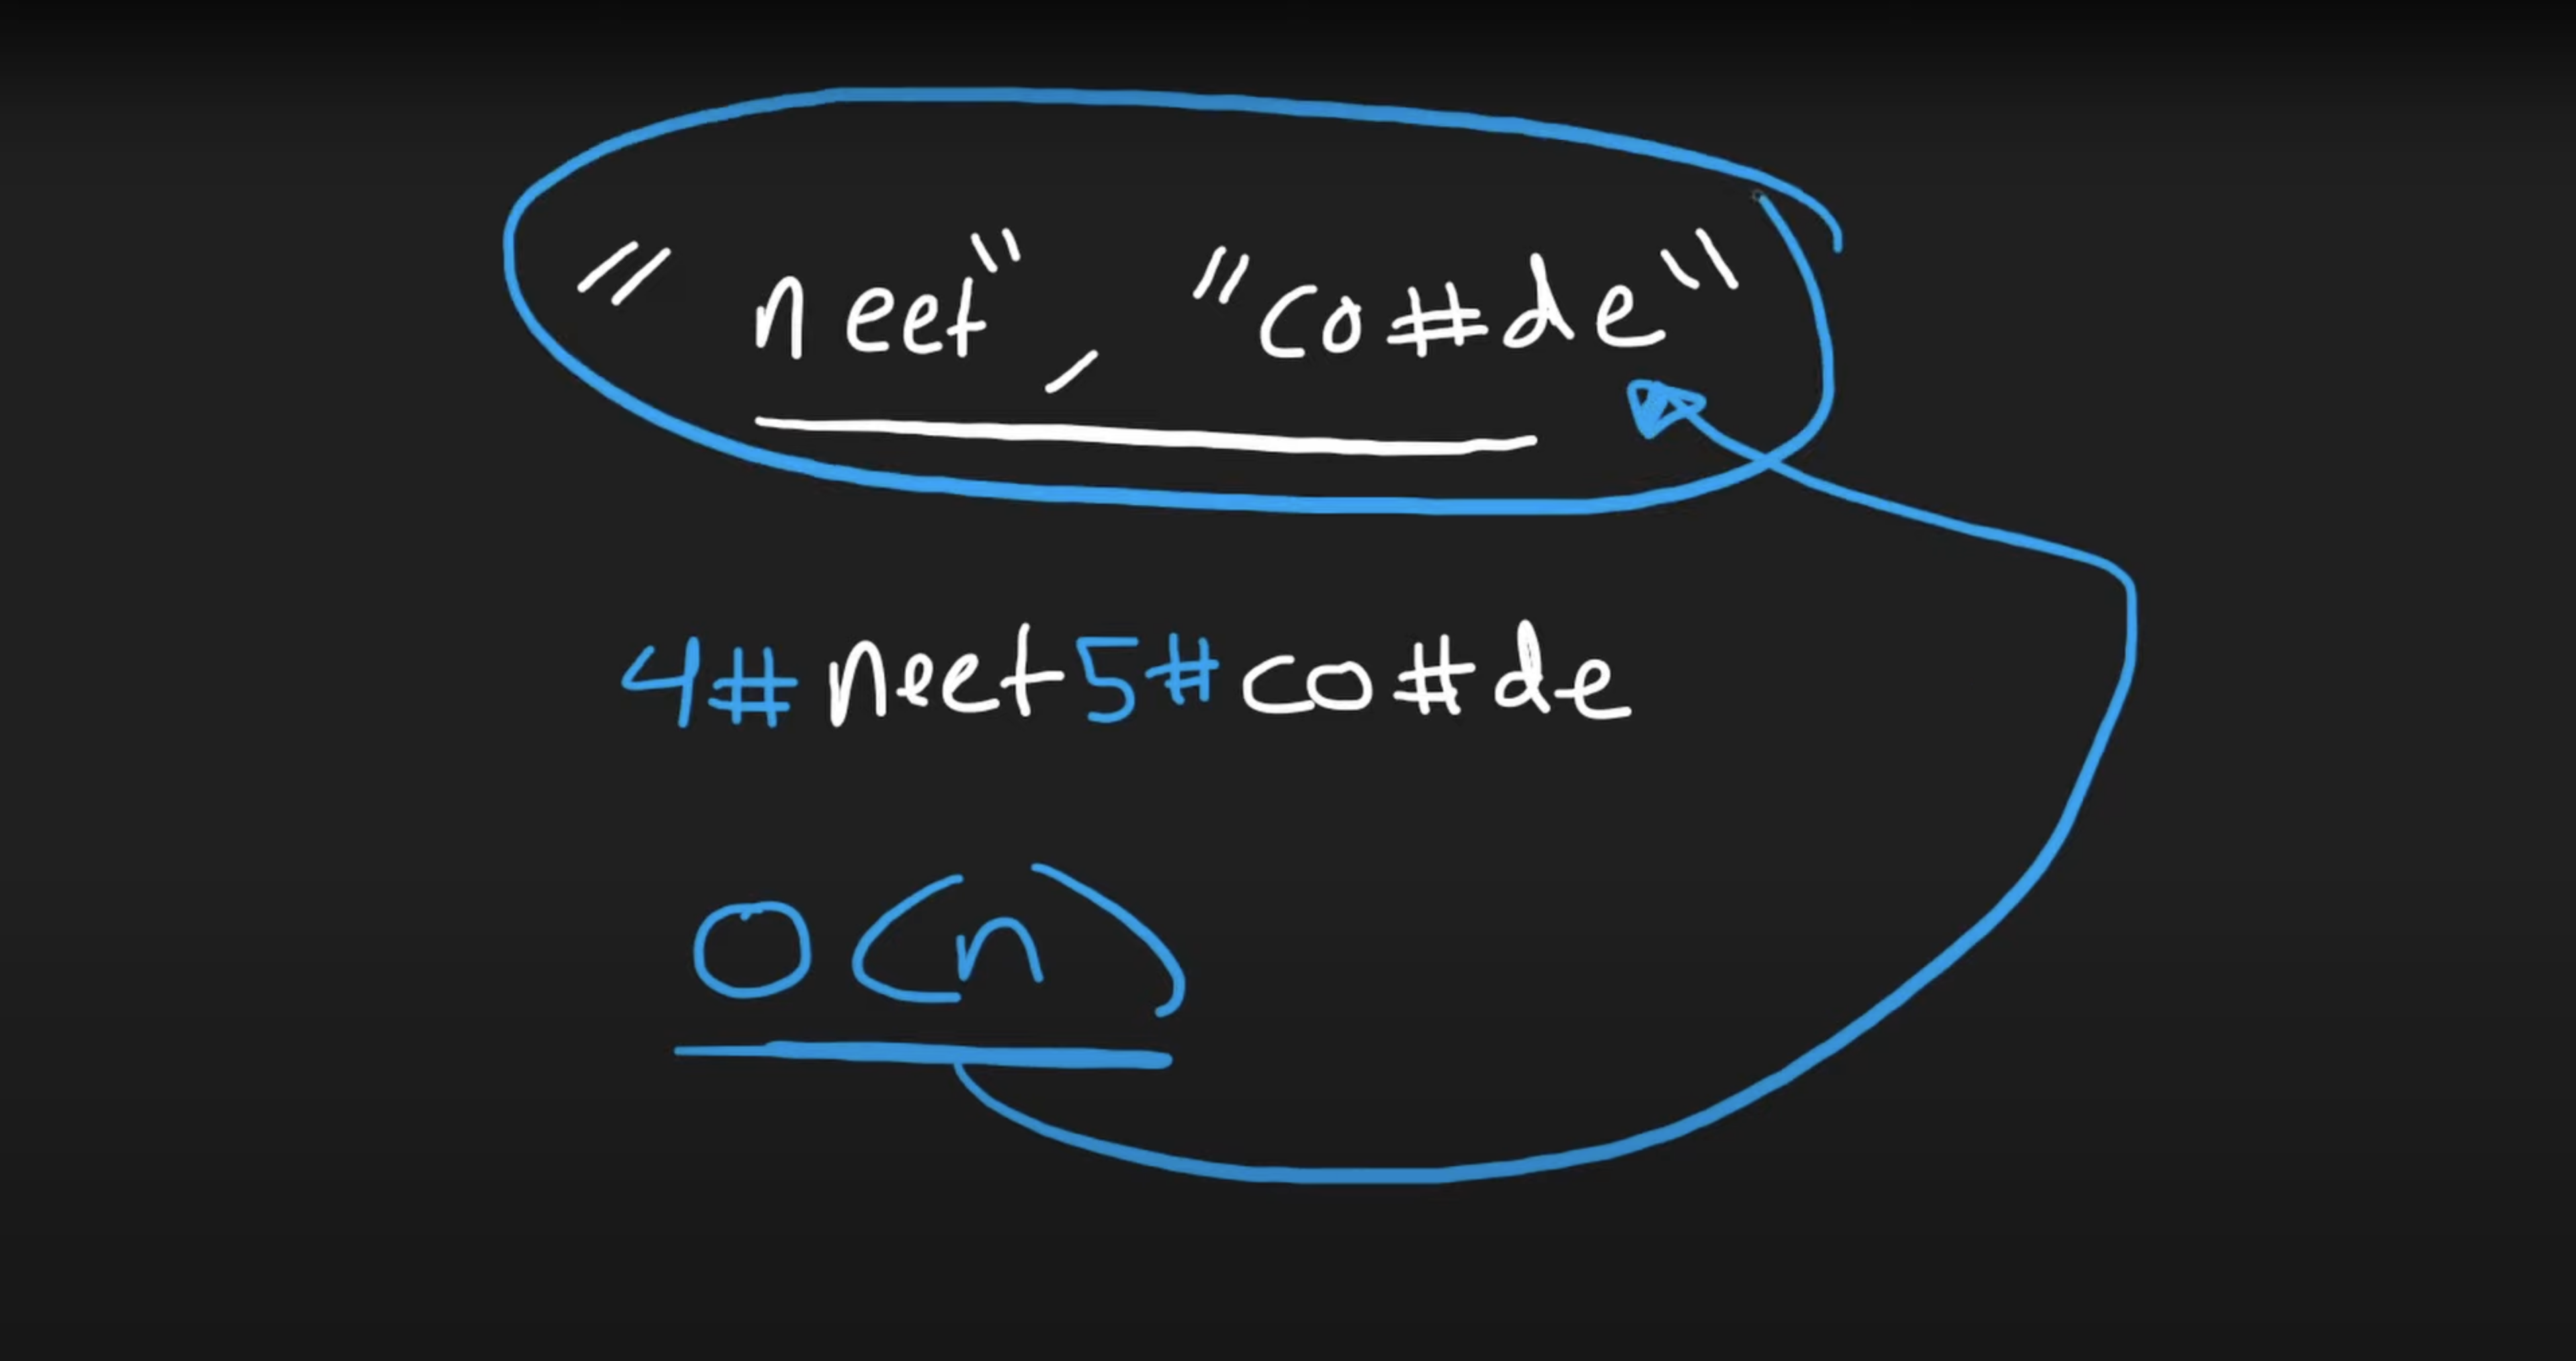 "neet", "co#de"
4#neet5#co#de
O(n)